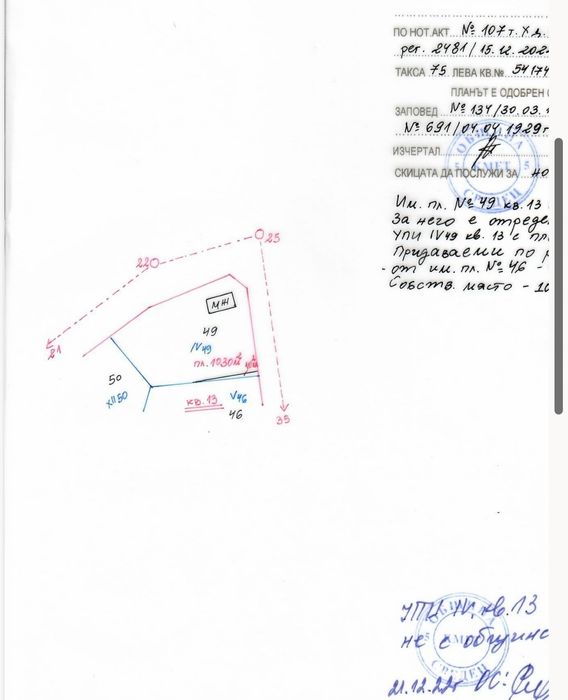 ПО НОТ.АКТ. № 107 т. X д.
рег. 2481 / 15.12.202
ТАКСА 75 ЛЕВА КВ.№ 54174
ПЛАНЪТ Е ОДОБРЕН
ЗАПОВЕД № 134/30.03.
№ 691/04.04.1929г
ИЗЧЕРТАЛ
СКИЦАТА ДА ПОСЛУЖИ ЗА но
ОБЩИНА
5 КМЕТ 5
СРЕДЕЦ
Им. пл. № 49 кв. 13
За него е опреде
УПИ IV49 кв. 13 с пл
Придаваеми по
от им. пл. № 46 -
Собств. място - 10
25
22
21
МЖ
49
IV49
пл. 1030м²
50
XII50
кв. 13
V46
46
35
УПИ IV, кв. 13
не с общинс
ОБЩИНА
5 КМЕТ
СРЕДЕЦ
21.12.22г